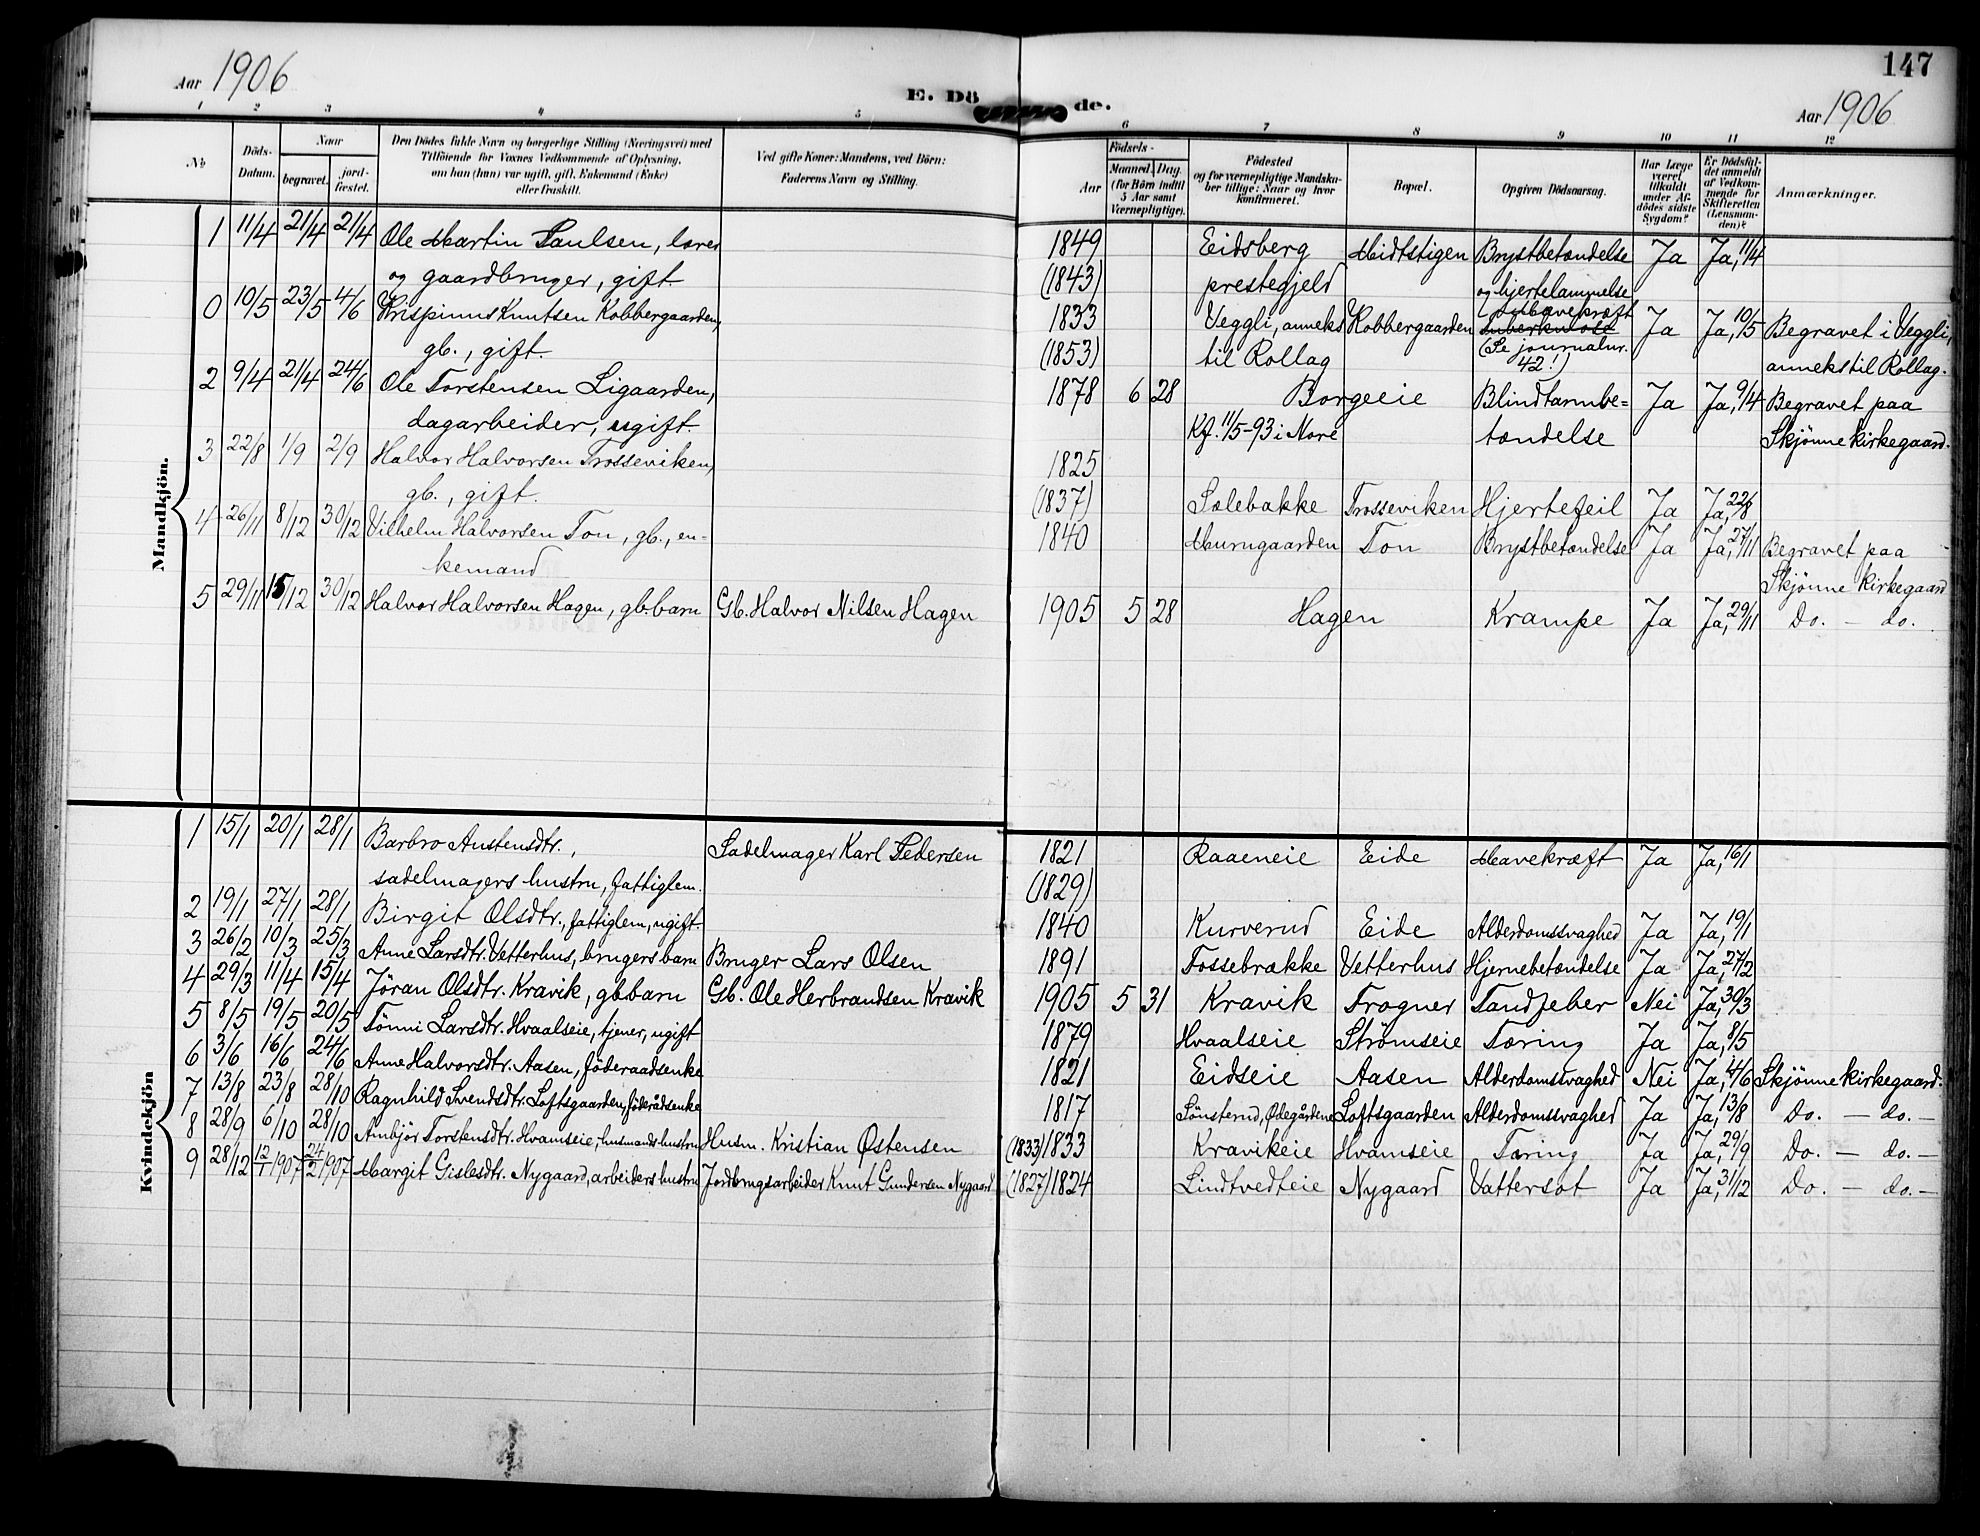 Aar 1906
E. Döde.
147
Aar 1906
1 2 3 4 5 6 7 8 9 10 11 12
No
Döds-Datum.
Naar
begravet.
jord-fæstet.
Den Dödes fulde Navn og borgerlige Stilling (Næringsvei) med
Tilföiende for Voxnes Vedkommende af Oplysning,
om han (hun) var ugift, gift, Enkemand (Enke)
eller fraskilt.
Ved gifte Koner: Mandens, ved Börn:
Faderens Navn og Stilling.
Födsels-
Aar
Maaned. Dag.
(for Börn indtil
5 Aar samt
Værnepligtige).
Födested
og for værnepligtige Mandska-
ber tillige: Naar og hvor
konfirmeret.
Bopæl.
Opgiven Dödsaarsag.
Har Læge
været
tilkaldt
under Af-
dödes sidste
Sygdom?
Er Dödsfal-
det anmeldt
af Vedkom-
mende for
Skifteretten
(Lensman-
den)?
Anmærkninger.
Mandkjön.
1 11/4 21/4 21/4 Ole Martin Paulsen, lærer 1849 Eidsberg Midtstigen Brystbetændelse Ja Ja, 11/4
og gaardbruger, gift (1843) prestegjeld og hjertelammelse
0 10/5 23/5 4/6 Krispinus Knutsen Kobbergaarden, 1833 Veggli, anneks Kobbergaarden tuberkulose Ja Ja, 10/5 Begravet i Veggli,
gb., gift. (1853) til Rollag (Se journalnr. 42!) anneks til Rollag.
2 9/4 21/4 24/6 Ole Torstensen Ligaarden, 1878 6 28 Borgeeie Blindtarmbe= Ja Ja, 9/4 Begravet paa
dagarbeider, ugift. Kf. 11/5-93 i Nore tændelse Skjønne kirkegaard.
3 22/8 1/9 2/9 Halvor Halvorsen Trosseviken, 1825
gb., gift. (1837) Solebakke Trosseviken Hjertefeil Ja Ja, 22/8
4 26/11 8/12 30/12 Vilhelm Halvorsen Ton, gb., en- 1840 Murngaarden Ton Brystbetændelse Ja Ja, 27/11 Begravet paa
kemand Skjønne kirkegaard
5 29/11 15/12 30/12 Halvor Halvorsen Hagen, gb.barn Gb. Halvor Nilsen Hagen 1905 5 28 Hagen Krampe Ja Ja, 29/11 Do. — do.
Kvindekjön
1 15/1 20/1 28/1 Barbro Anstensdtr., Sadelmager Karl Pedersen 1821 Raaeneie Eide Mavekræft Ja Ja, 16/1
sadelmagers hustru, fattiglem. (1829)
2 19/1 27/1 28/1 Birgit Olsdtr., fattiglem, ugift. 1840 Kurverud Eide Alderdomssvaghed Ja Ja, 19/1
3 26/2 10/3 25/3 Anne Larsdtr. Vetterhus, brugers barn Bruger Lars Olsen 1891 Fossebrække Vetterhus Hjernebetændelse Ja Ja, 27/2
4 29/3 11/4 15/4 Jöran Olsdtr. Kravik, gb.barn Gb. Ole Herbrandsen Kravik 1905 5 31 Kravik Frogner Tandfeber Nei Ja, 30/3
5 8/5 19/5 20/5 Tönni Larsdtr. Hvaalseie, tjener, ugift 1879 Hvaalseie Strømseie Tæring Ja Ja, 8/5
6 3/6 16/6 24/6 Anne Halvorsdtr. Aasen, föderaadsenke 1821 Eidseie Aasen Alderdomssvaghed Nei Ja, 4/6 Skjønne kirkegaard.
7 13/8 23/8 28/10 Ragnhild Svendsdtr. Loftsgaarden, föderådsenke 1817 Sönsterud, Ødegården Loftsgaarden Alderdomssvaghed Ja Ja, 13/8 Do. — do. —
8 28/9 6/10 28/10 Ambjör Torstensdtr. Hvamseie, husmands hustru Husm. Kristian Østensen (1833) 1833 Kravikeie Hvamseie Tæring Ja Ja, 29/9 Do. — do. —
9 28/12 12/1 1907 24/2 1907 Margit Gislesdtr. Nygaard, arbeiders hustru Jordbrugsarbeider Knut Gundersen Nygaard (1827) 1824 Lindtvedteie Nygaard Vattersot Ja Ja, 31/12 Do. — do. —